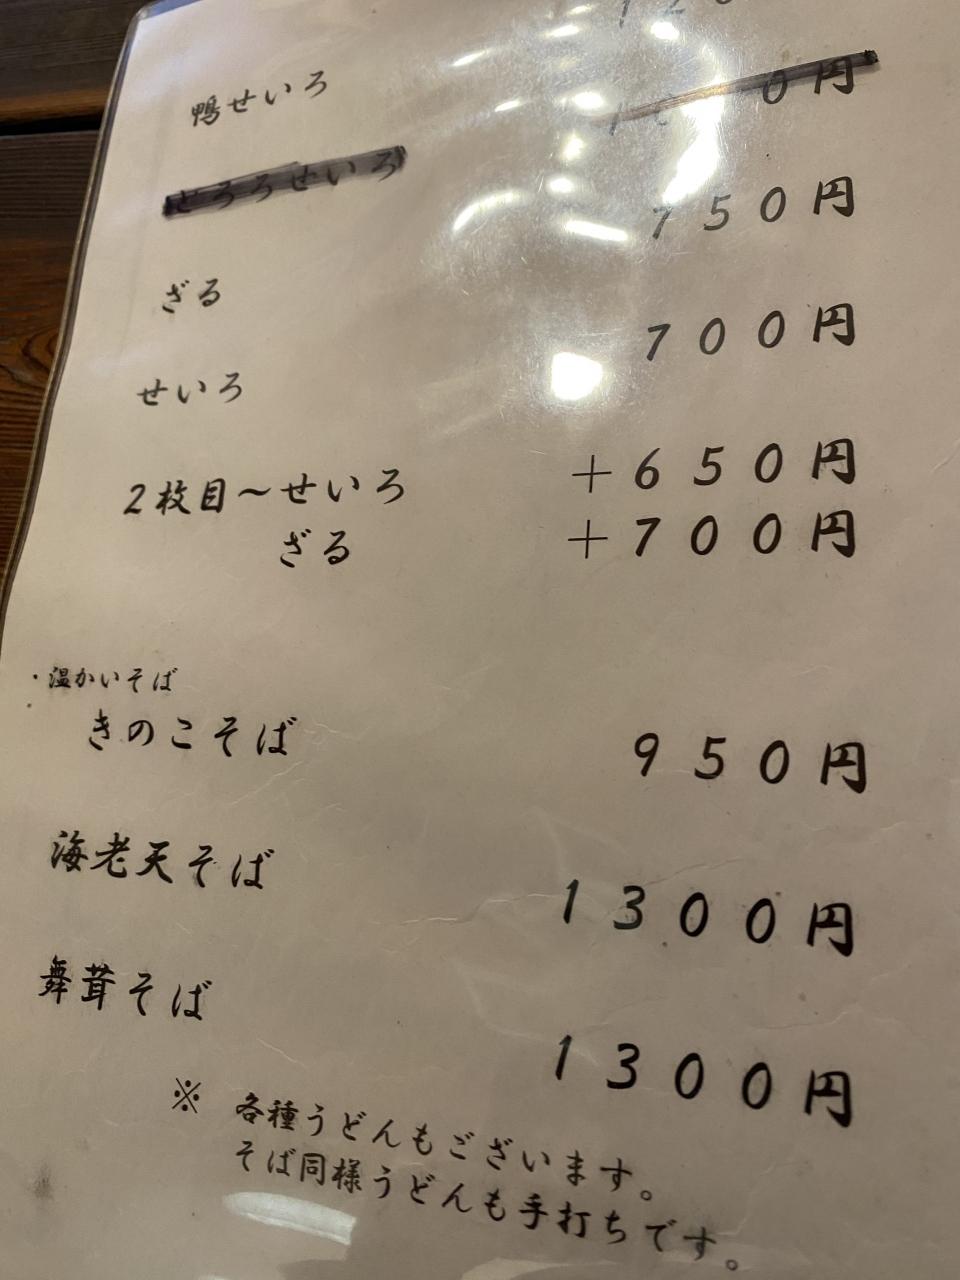 鴨せいろ
とろろせいろ 円
ざる 750円
せいろ 700円
2枚目～せいろ +650円
ざる +700円
・温かいそば
きのこそば 950円
海老天そば 1300円
舞茸そば 1300円
※ 各種うどんもございます。
そば同様うどんも手打ちです。